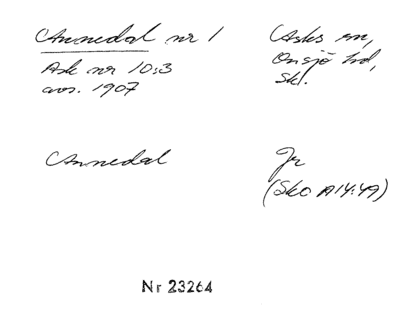 Annedal nr 1
Ask nr 10:3
avs. 1907
Asks sn,
Onsjö hd,
Skl.
Annedal
Jr
(Sko A14:49)
Nr 23264